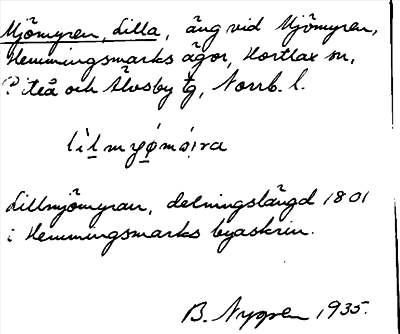 Mjömyren, Lilla, äng vid Mjömyren,
Hemmingsmarks ägor, Hortlax sn,
Piteå och Älvsby tg, Norrb. l.
lìlmyǿmǿi̯ra
Lillmjömyran, delningslängd 1801
i Hemmingsmarks byaskrin.
B. Nygren 1935.